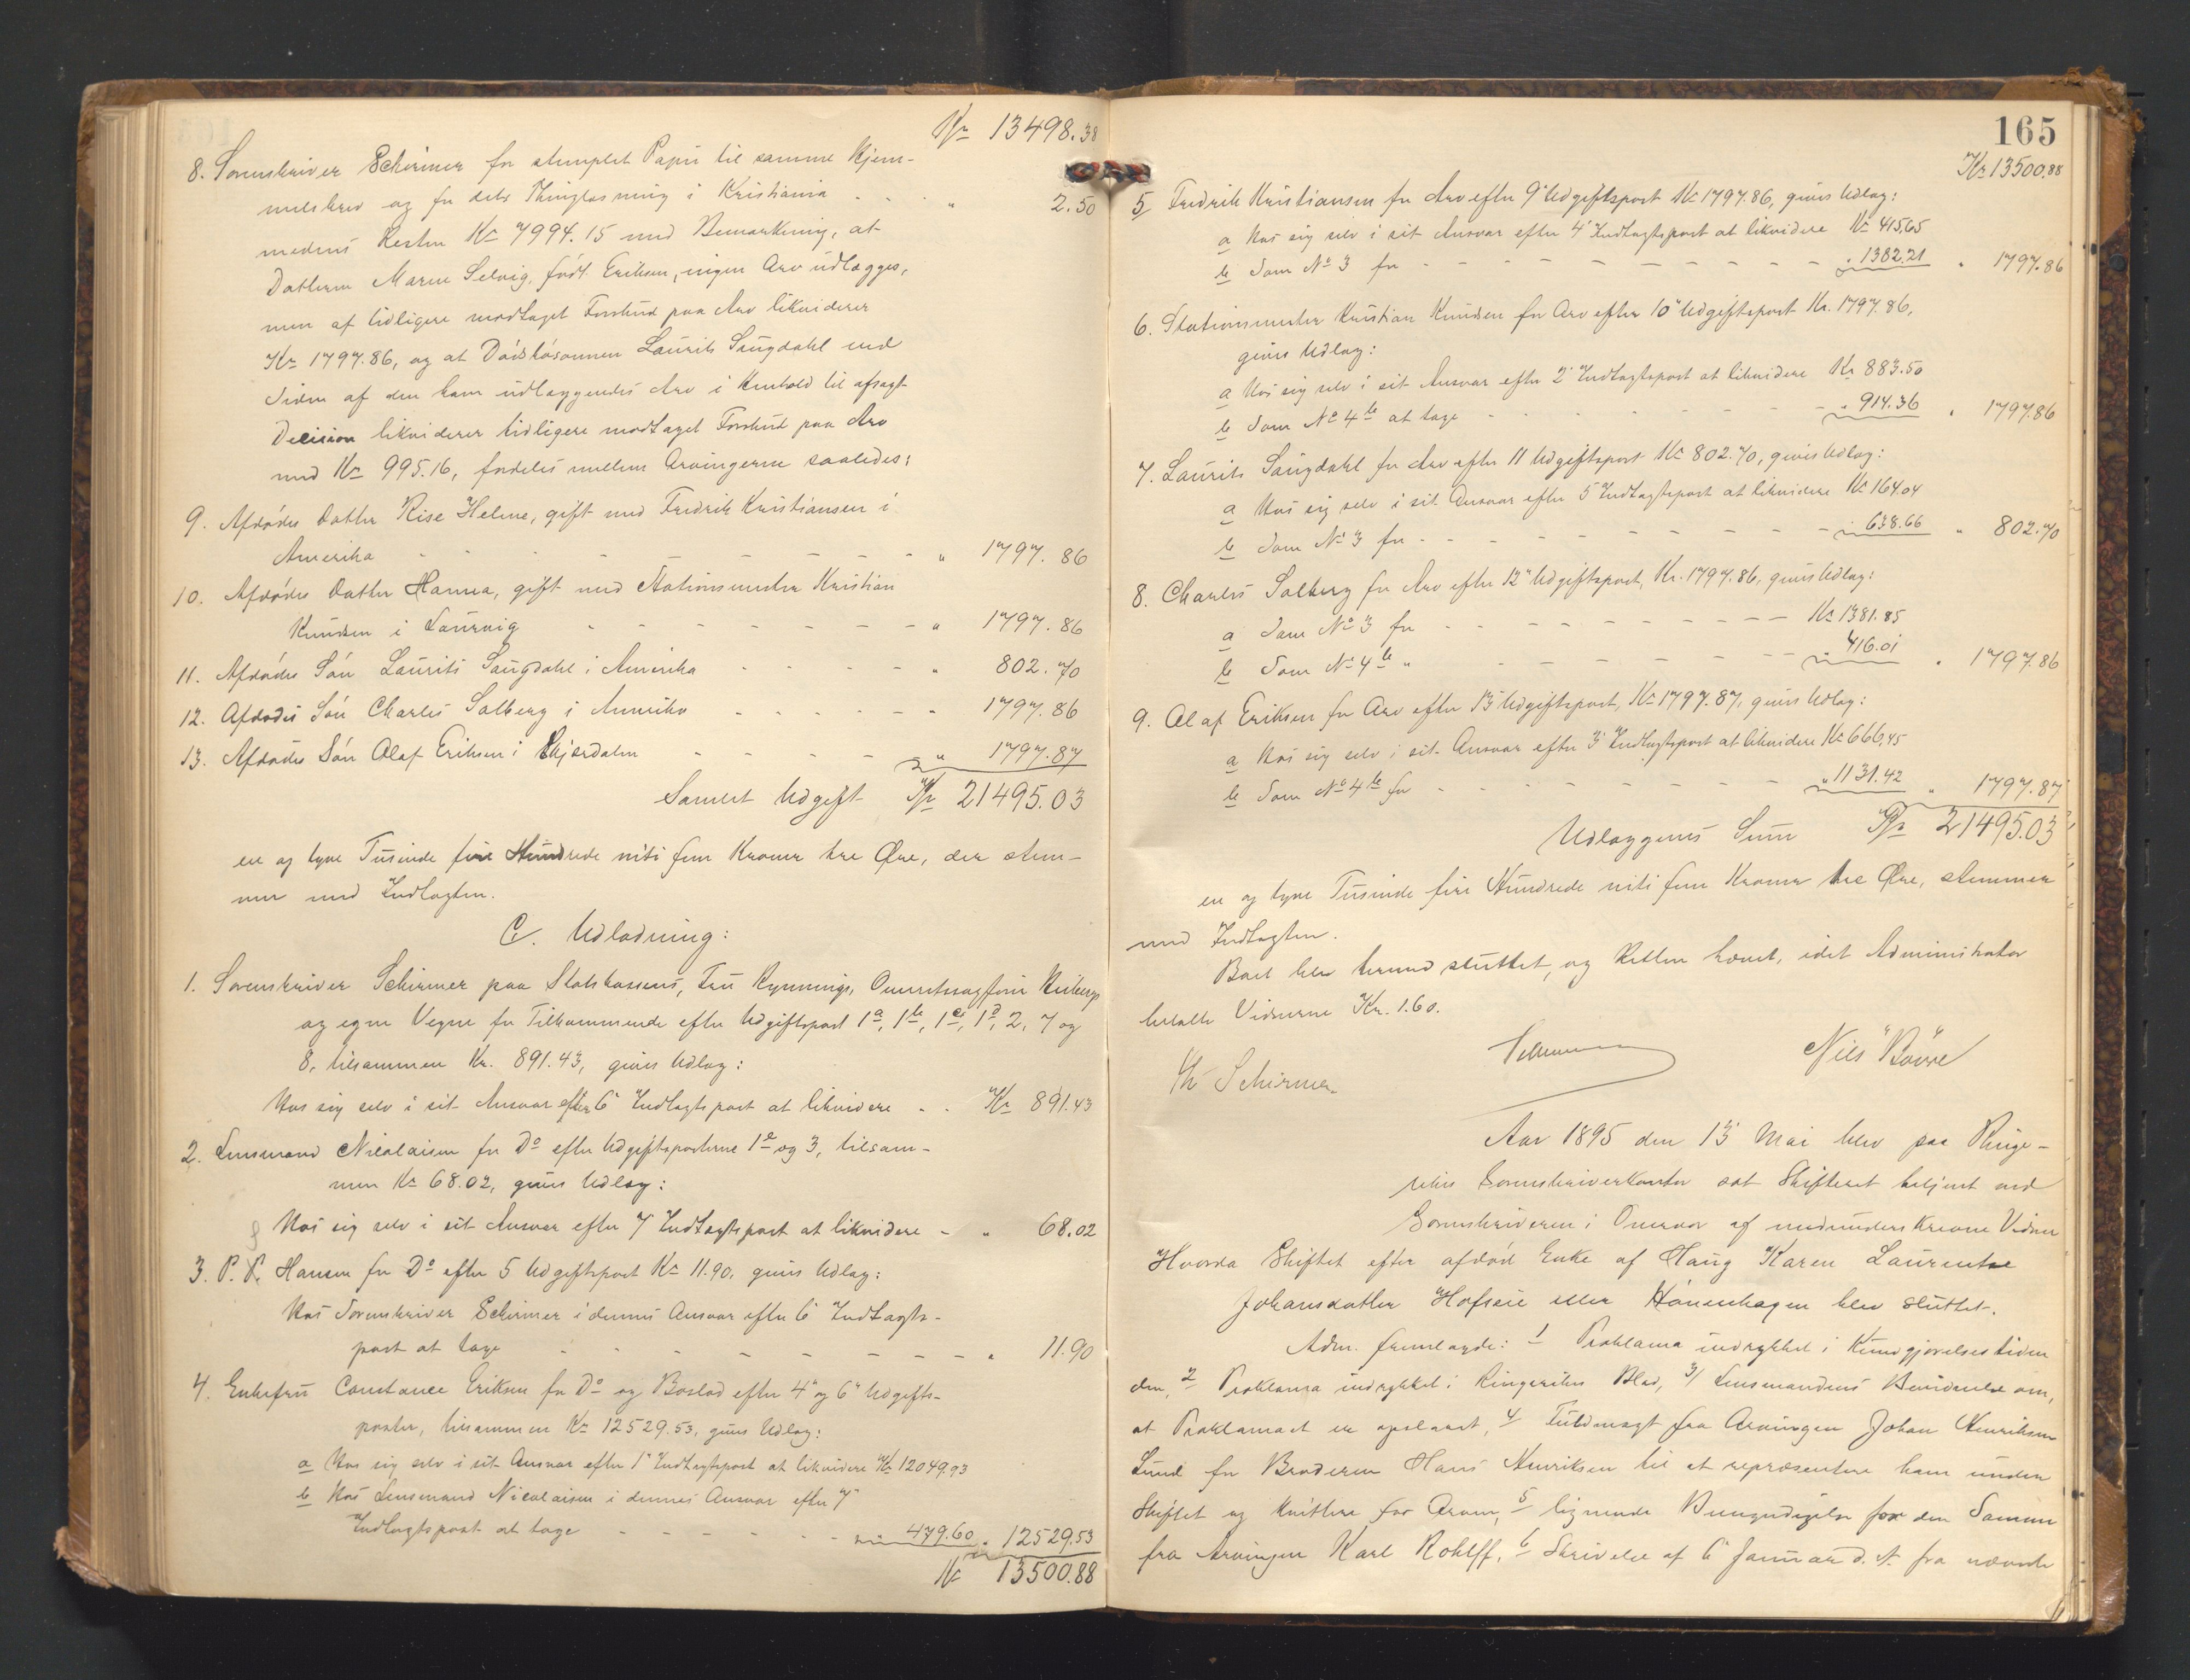 Kr 13498.38
8. Sorenskriver Schirmer for stemplet Papir til samme Hjem-
melsbrev og for dets Thinglæsning i Kristiania - - - " 2.50
medens Resten Kr 7994.15 med Bemærkning, at
Datteren Maren Selvig, født Eriksen, ingen Arv udlægges,
men af tidligere modtaget Forskud paa Arv likviderer
Kr 1797.86, og at Dødsbosønnen Laurits Saugdahl ved
Siden af den ham udlæggendes Arv i Henhold til afsagt
Decision likviderer tidligere modtaget Forskud paa Arv
med Kr 995.16, fordeles mellem Arvingerne saaledes:
9. Afdødes Datter Rise Helene, gift med Fredrik Kristiansen i
Amerika - - - - - - " 1797.86
10. Afdødes Datter Hanna, gift med Stationsmester Kristian
Knudsen i Laurvig - - - - - - " 1797.86
11. Afdødes Søn Laurits Saugdahl i Amerika - - - - " 802.70
12. Afdødes Søn Charles Solberg i Amerika - - - - - " 1797.86
13. Afdødes Søn Olaf Eriksen i Skjærdalen - - - - " 1797.87
Samlet Udgift Kr 21495.03
en og tyve Tusinde fire Hundrede niti fem Kroner tre Øre, der stem-
mer med Indtægten.
C. Udlodning:
1. Sorenskriver Schirmer paa Statskassens, Fru Rynnings, Overretssagfører
og egne Vegne for Tilkommende efter Udgiftspost 1a, 1b, 1c, 1d, 2, 7 og
8, tilsammen Kr. 891.43, gives Udlæg:
Hos sig selv i sit Ansvar efter 6 Indtægtspost at likvidere - - Kr 891.43
2. Lensmand Nicolaisen for Do efter Udgiftsposterne 1e og 3, tilsam-
men Kr 68.02, gives Udlæg:
Hos sig selv i sit Ansvar efter 7 Indtægtspost at likvidere - " 68.02
3. P. P. Hansen for Do efter 5 Udgiftspost Kr 11.90, gives Udlæg:
Hos Sorenskriver Schirmer i dennes Ansvar efter 6 Indtægts-
post at tage - - - - - - - - " 11.90
4. Enkefru Constance Eriksen for Do og Boslod efter 4" og 6" Udgifts-
poster, tilsammen Kr 12529.53, gives Udlæg:
a Hos sig selv i sit Ansvar efter 1" Indtægtspost at likvidere Kr 12049.93
b Hos Lensmand Nicolaisen i dennes Ansvar efter 7"
Indtægtspost at tage - - - - - - " 479.60 " 12529.53
Kr 13500.88
165
Kr 13500.88
5 Fredrik Kristiansen for Arv efter 9" Udgiftspost Kr 1797.86, gives Udlæg:
a Hos sig selv i sit Ansvar efter 4" Indtægtspost at likvidere Kr 415.65
b Som No 3 for - - - - - - - - - " 1382.21 " 1797.86
6. Stationsmester Kristian Knudsen for Arv efter 10" Udgiftspost Kr. 1797.86,
gives Udlæg:
a Hos sig selv i sit Ansvar efter 2" Indtægtspost at likvidere Kr 883.50
b Som No 4b at tage - - - - - - - " 914.36 " 1797.86
7. Laurits Saugdahl for Arv efter 11 Udgiftspost Kr 802.70, gives Udlæg:
a Hos sig selv i sit Ansvar efter 5 Indtægtspost at likvidere Kr 164.04
b Som No 3 for - - - - - - - - " 638.66 " 802.70
8. Charles Solberg for Arv efter 12" Udgiftspost, Kr. 1797.86, gives Udlæg:
a Som No 3 for - - - - - - - - - Kr 1381.85
b Som No 4b " - - - - - - " 416.01 " 1797.86
9. Olaf Eriksen for Arv efter 13 Udgiftspost, Kr 1797.87, gives Udlæg:
a Hos sig selv i sit Ansvar efter 3" Indtægtspost at likvidere Kr 666.45
b Som No 4b for - - - - - - - " 1131.42 " 1797.87
Udlæggenes Sum Kr 21495.03
en og tyve Tusinde fire Hundrede niti fem Kroner tre Øre, stemmer
med Indtægten.
Boet blev hermed sluttet, og Retten hævet, idet Administrator
betalte Vidnerne Kr. 1.60.
Schirmer Nils Bövre
Th Schirmer
Aar 1895 den 13 Mai blev paa Ringe-
rikes Sorenskriverkontor sat Skifteret betjent ved
Sorenskriveren i Overvær af medunderskrevne Vidner
Hvorda Skiftet efter afdød Enke af Haug Karen Laurentse
Johansdatter Hofseie eller Hønenhagen blev sluttet.
Adm. fremlagde: 1 Proklama indrykket i Kundgjørelsestiden
den, 2 Proklama indrykket i Ringerikes Blad, 3/ Lensmandens Bevidnelse om,
at Proklamaet er opslaaet, 4/ Fuldmagt fra Arvingen Johan Henriksen
Lund for Broderen Hans Henriksen til at repræsentere ham under
Skiftet og kvittere for Arven, 5 lignende Bemyndigelse for den Samme
fra Arvingen Karl Rohlff, 6 Skrivelse af 6" Januar d. A. fra nævnte